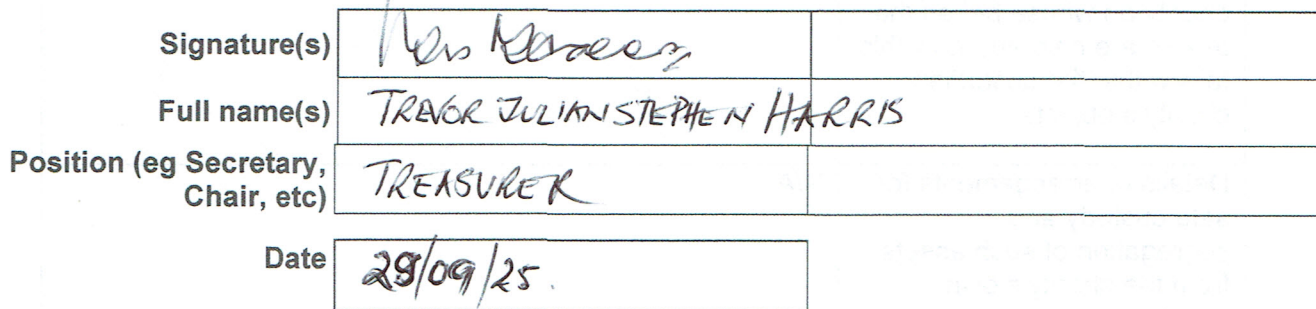 Signature(s)
Full name(s) TREVOR JULIAN STEPHEN HARRIS
Position (eg Secretary,
Chair, etc) TREASURER
Date 29/09/25.